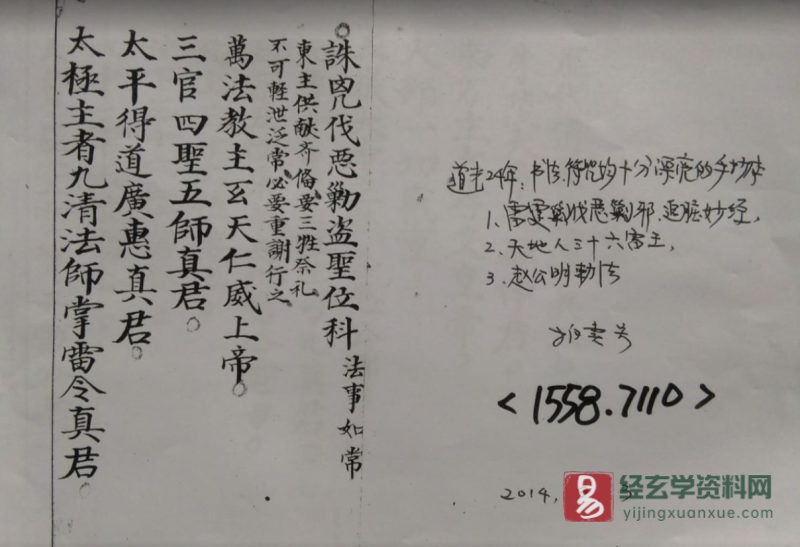 誅兇伐惡勦盜聖位科 法事如常
東主供献齐俻要三牲祭礼
不可輕泄泛常必要重謝行之
萬法教主玄天仁威上帝
三官四聖五師真君
太平得道廣惠真君
太極主者九清法師掌雷令真君
道光24年,书法、符咒均十分深底的手抄本
1、雷霆 伐恶 邪,追脏妙经,
2、天地人三十六宫主,
3、赵公明勅法
<1558.7110>
2014,
易
经玄学资料网
yijingxuanxue.com